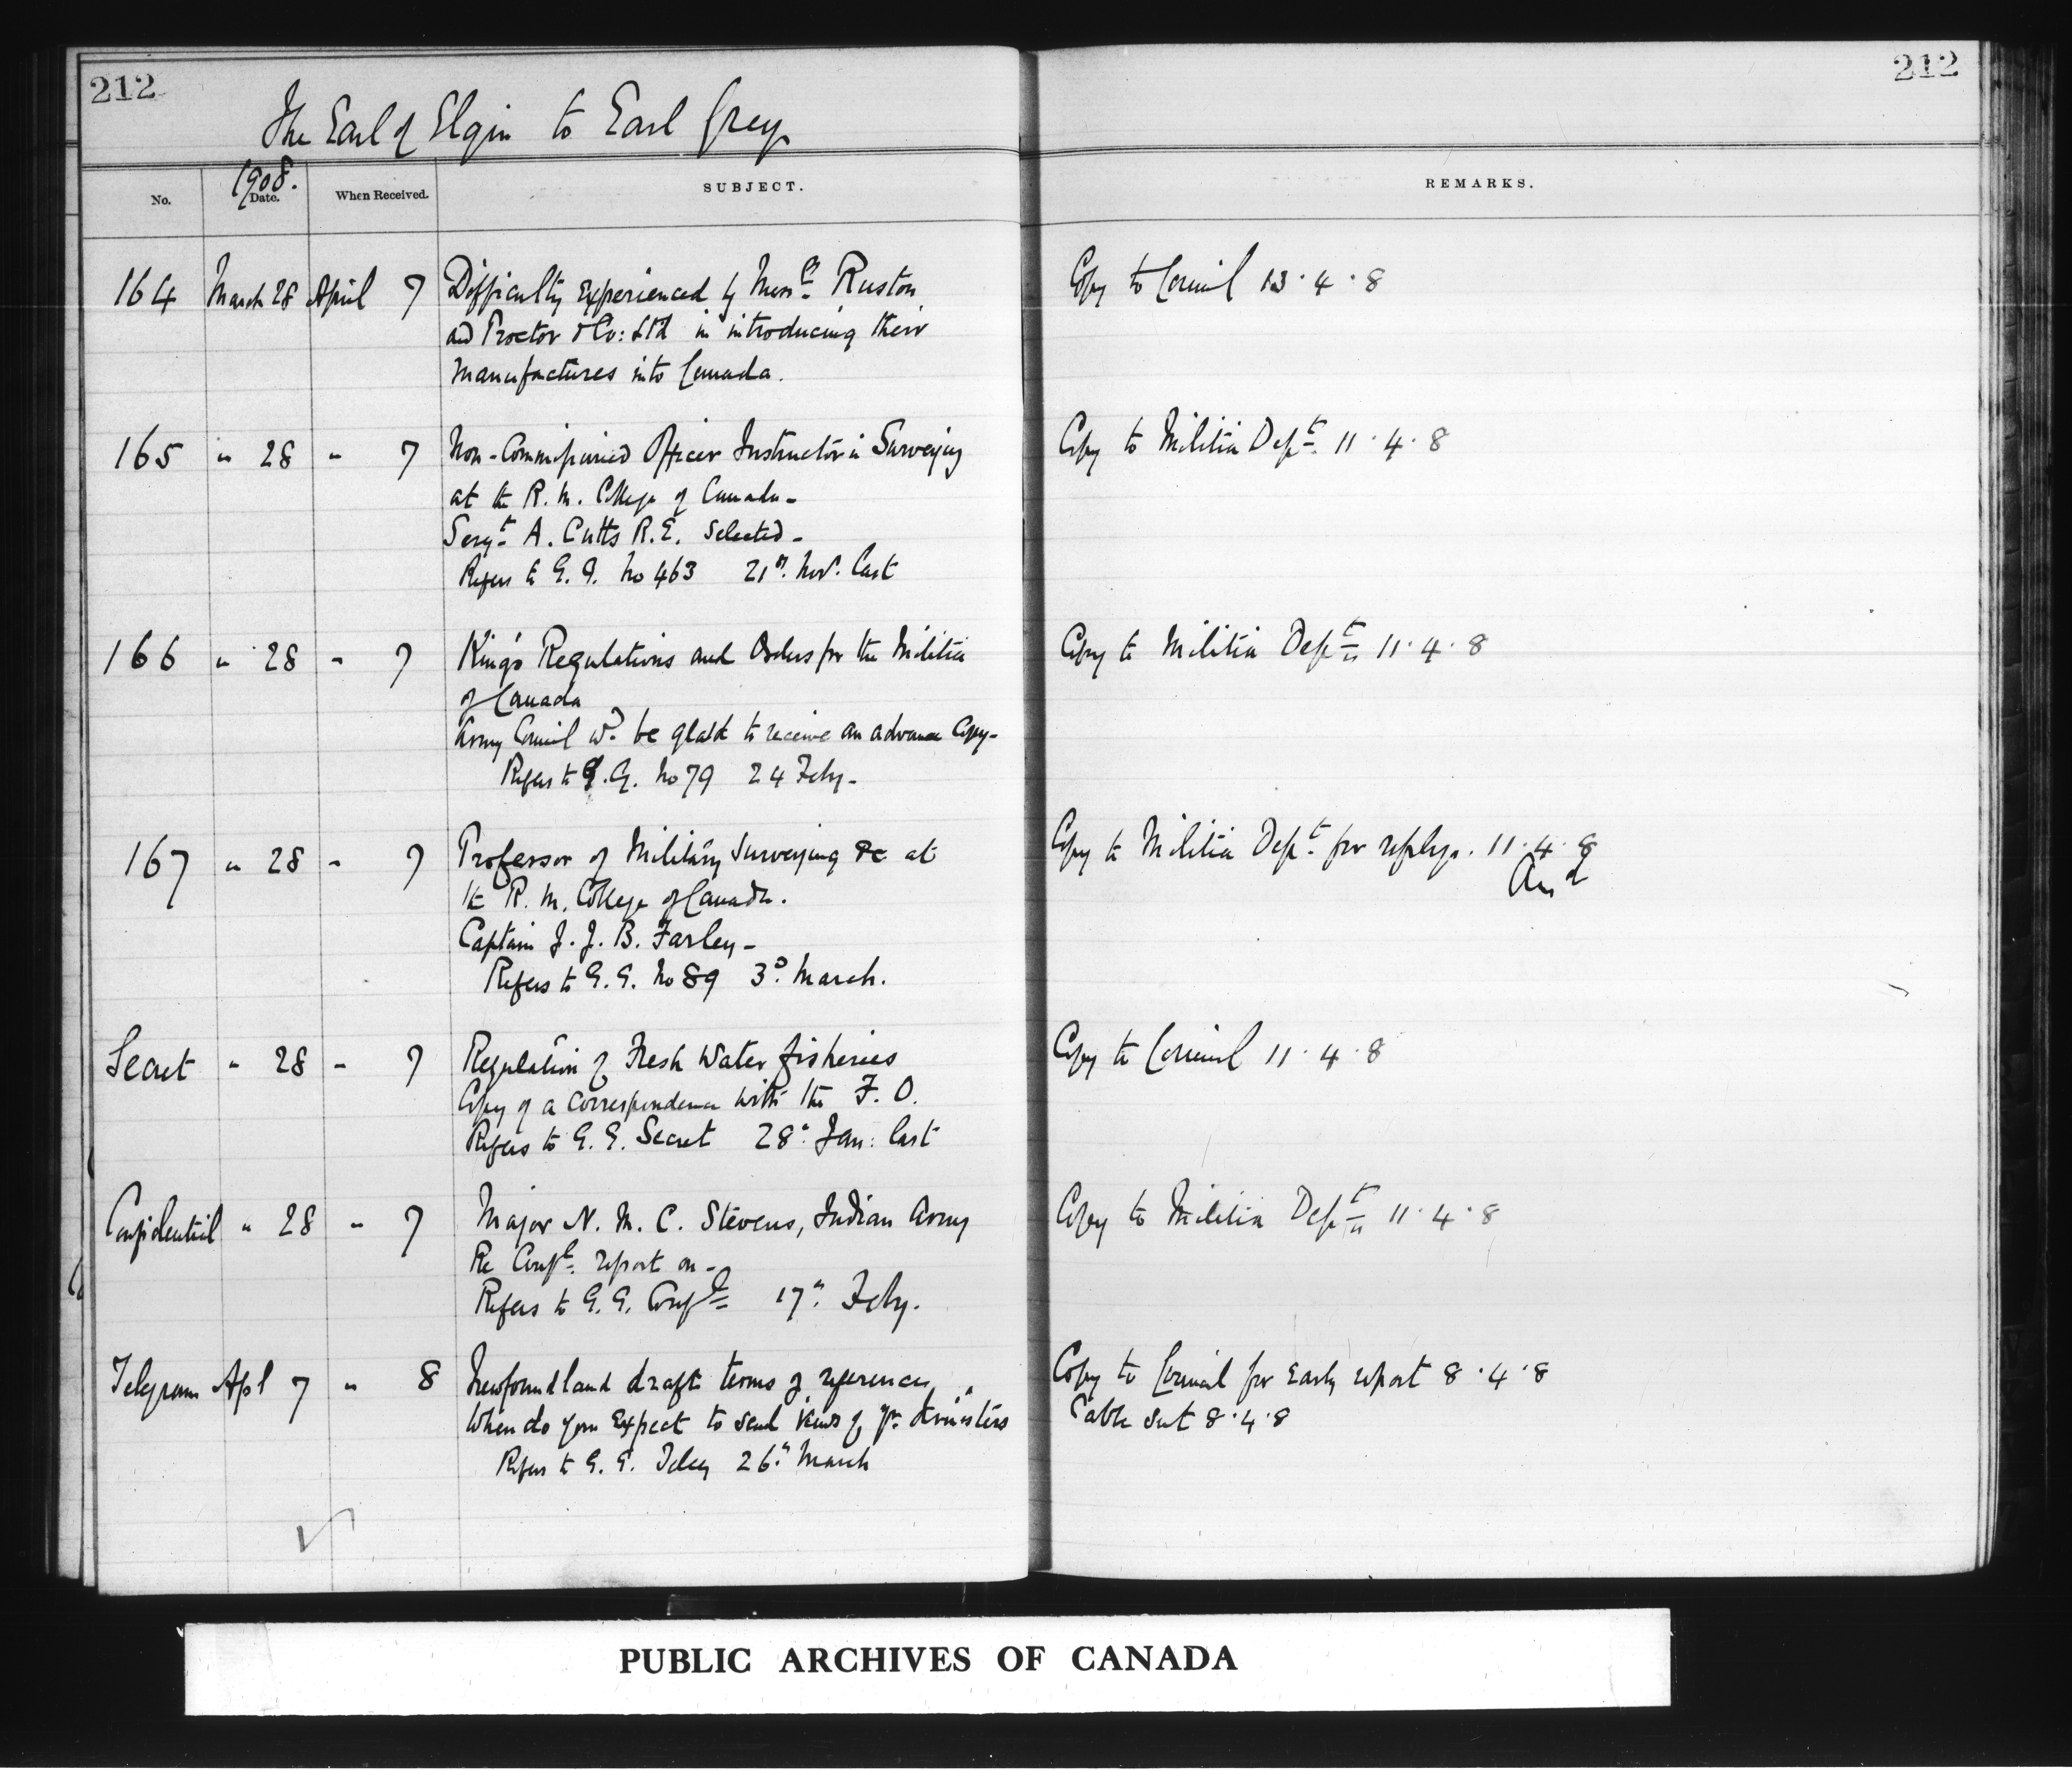 212
212
The Earl of Elgin to Earl Grey
No.
1908.
Date.
When Received.
SUBJECT.
REMARKS.
164 March 28 April 7 Difficulty experienced by Messrs Ruston Copy to Council 13.4.8
and Proctor & Co: Ltd in introducing their
manufactures into Canada.
165 " 28 " 7 Non-Commissioned Officer Instructor in Surveying Copy to Militia Dept 11.4.8
at the R. M. College of Canada -
Sergt A. Cutts R.E. Selected -
Refers to G. G. No 463 21st Nov. last
166 " 28 " 7 King's Regulations and Orders for the Militia Copy to Militia Dept 11.4.8
of Canada
Army Council wd be glad to receive an advance copy -
Refers to G. G. No 79 24 Feby -
167 " 28 " 7 Professor of Military Surveying &c at Copy to Militia Dept for reply. 11.4.8
Ansd
the R. M. College of Canada.
Captain J. J. B. Farley -
Refers to G. G. No 89 3d March.
Secret " 28 " 7 Regulation of Fresh Water fisheries Copy to Council 11.4.8
Copy of a correspondence with the F. O.
Refers to G. G. Secret 28" Jan: last
Confidential " 28 " 7 Major N. M. C. Stevens, Indian Army Copy to Militia Dept 11.4.8
Re Confl report on -
Refers to G. G. Confl 17" Feby.
Telegram Apl 7 " 8 Newfoundland draft terms of reference Copy to Council for early report 8.4.8
When do you expect to send views of yr Ministers Cable sent 8.4.8
Refers to G. G. Teleg 26" March
PUBLIC ARCHIVES OF CANADA